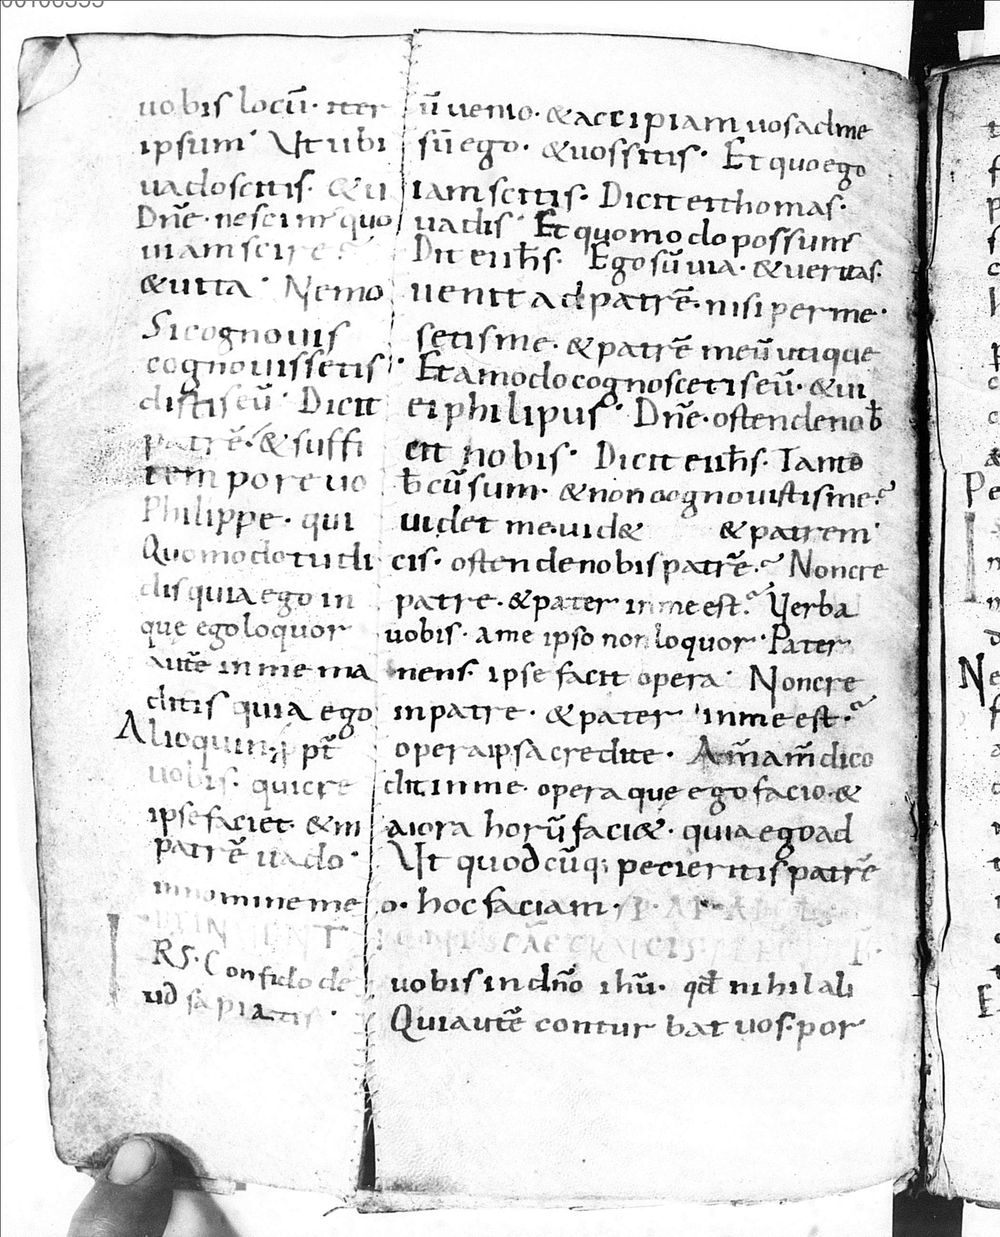 uobis locū· iter ū uenio· & accipiam uos ad me
ipsum· Ut ubi sū ego· & uos sitis· Et quo ego
uado scitis· & ui iam scitis· Dicit ei thomas·
Dn̄e· nescim' quo uadis· Et quomodo possum'
uiam scire? Dit ei ih̄s· Ego sū uia· & ueritas·
& uita· Nemo uenit ad patrē· nisi per me·
Si cognouis setis me· & patrē meū utique
cognouissetis· Et amodo cognoscetis eū· & ui
distis eū· Dicit ei philipus· Dn̄e· ostende nob̄
patrē· & suffi cit nobis· Dicit ei ih̄s· Tanto
tempore uo b̄cū sum· & non cognouistis me?
Philippe· qui uidet me uid& & patrem·
Quomodo tu di cis· ostende nobis patrē? Non cre
dis quia ego in patre· & pater in me est? Uerba
que ego loquor uobis· a me ipso non loquor· Pater
autē in me ma nens· ipse facit opera· Non cre
ditis quia ego in patre· & pater in me est?
Alioquin· ꝑpt̄ opera ipsa credite· Am̄ am̄ dico
uobis· qui cre dit in me· opera que ego facio· &
ipse faciet· & m aiora horū faci&· quia ego ad
patrē uado· Ut quodcūq; pecieritis patrē
in nomine me o· hoc faciam·
IN
RS· Confido de uobis in dn̄o ih̄u· qd̄ nihil ali
ud sapiatis· Qui autē conturbat uos· por
00106333